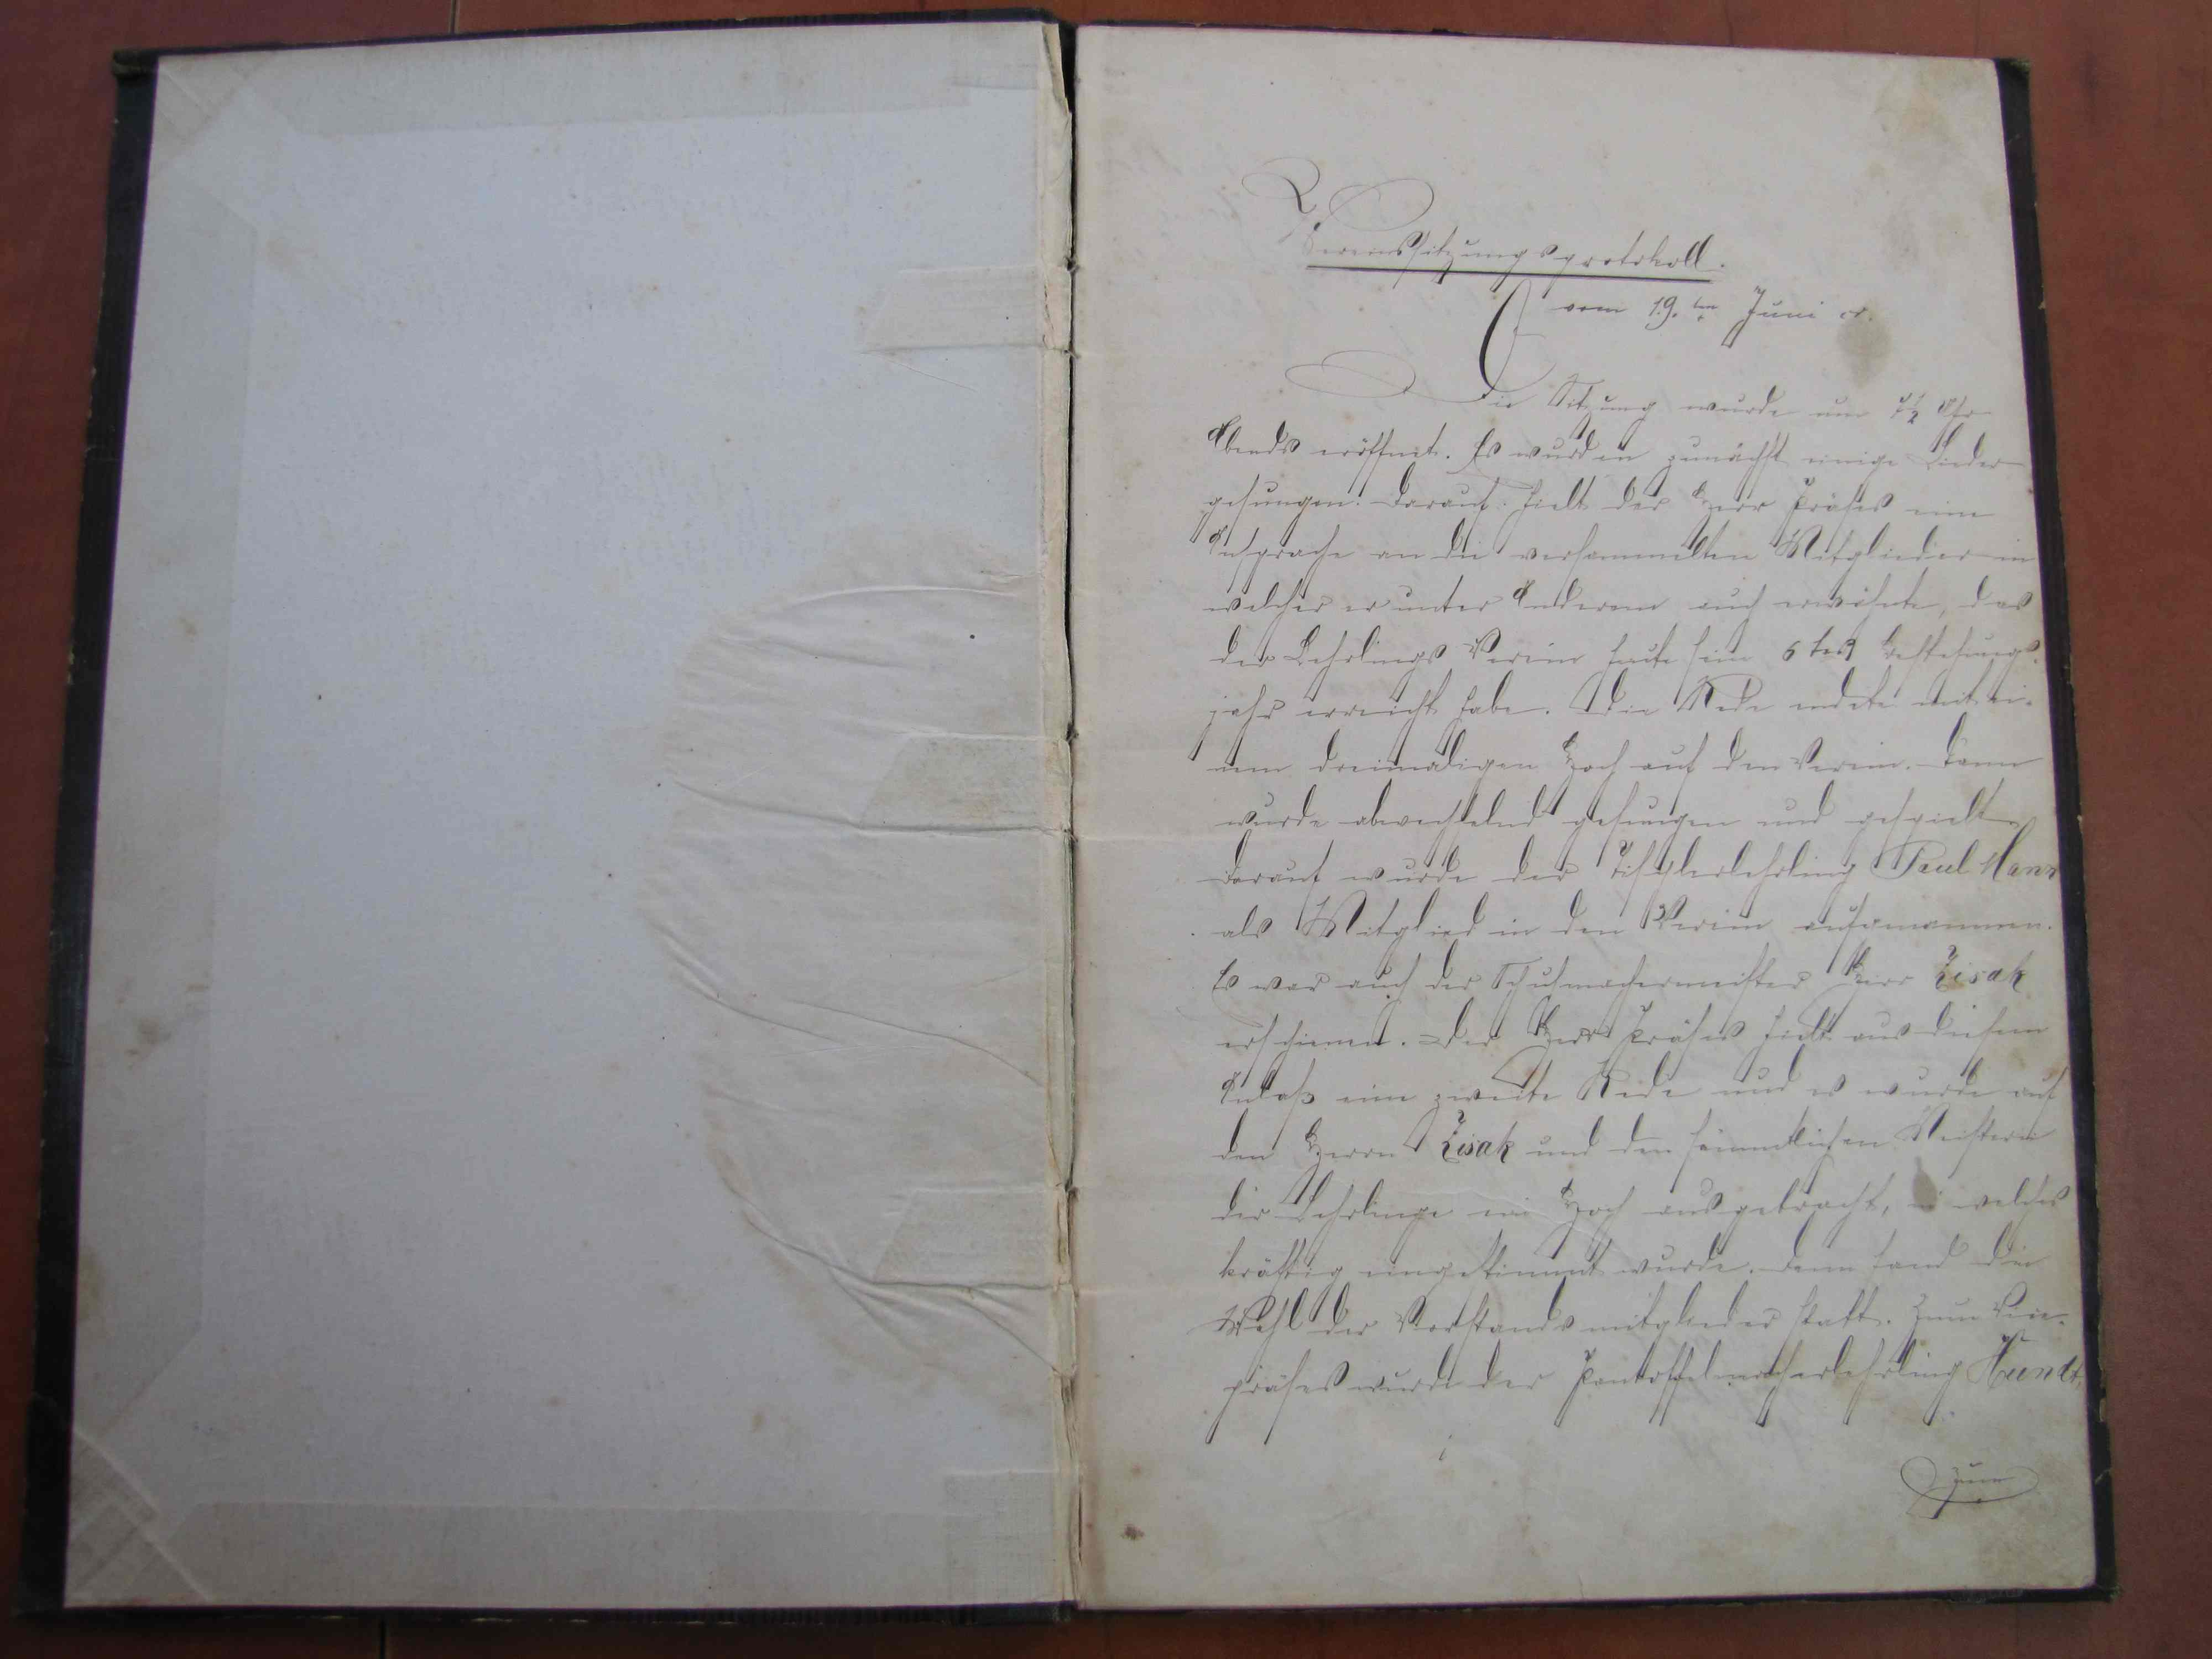 Vereinssitzungsprotokoll.
vom 19.ten Juni cr.
Die Sitzung wurde um Uhr
Abends eröffnet. Es wurden zunächst einige Lieder
gesungen. Darauf hielt der Herr Präses eine
Ansprache an die versammelten Mitglieder in
welcher er unter Anderem auch erwähnte, das
der Lehrlings Verein heute sein 6tes Bestehungs-
jahr erreicht habe. Die Rede endete mit ei-
nem dreimaligen Hoch auf den Verein. Dann
wurde abwechselnd gesungen und gespielt.
Darauf wurde der Tischlerlehrling Paul Mann
als Mitglied in den Verein aufgenommen.
Es war auch der Schuhmachermeister Herr Zisak
erschienen. Der Herr Präses hielt aus diesem
Anlaß eine zweite Rede und es wurde auf
den Herrn Zisak und den sämmtlichen Meistern
der Lehrlinge ein Hoch ausgebracht, in welches
kräftig eingestimmt wurde. Dann fand die
Wahl der Vorstandsmitglieder statt. Zum Vice-
präses wurde der Pantoffelmacherlehrling
zum